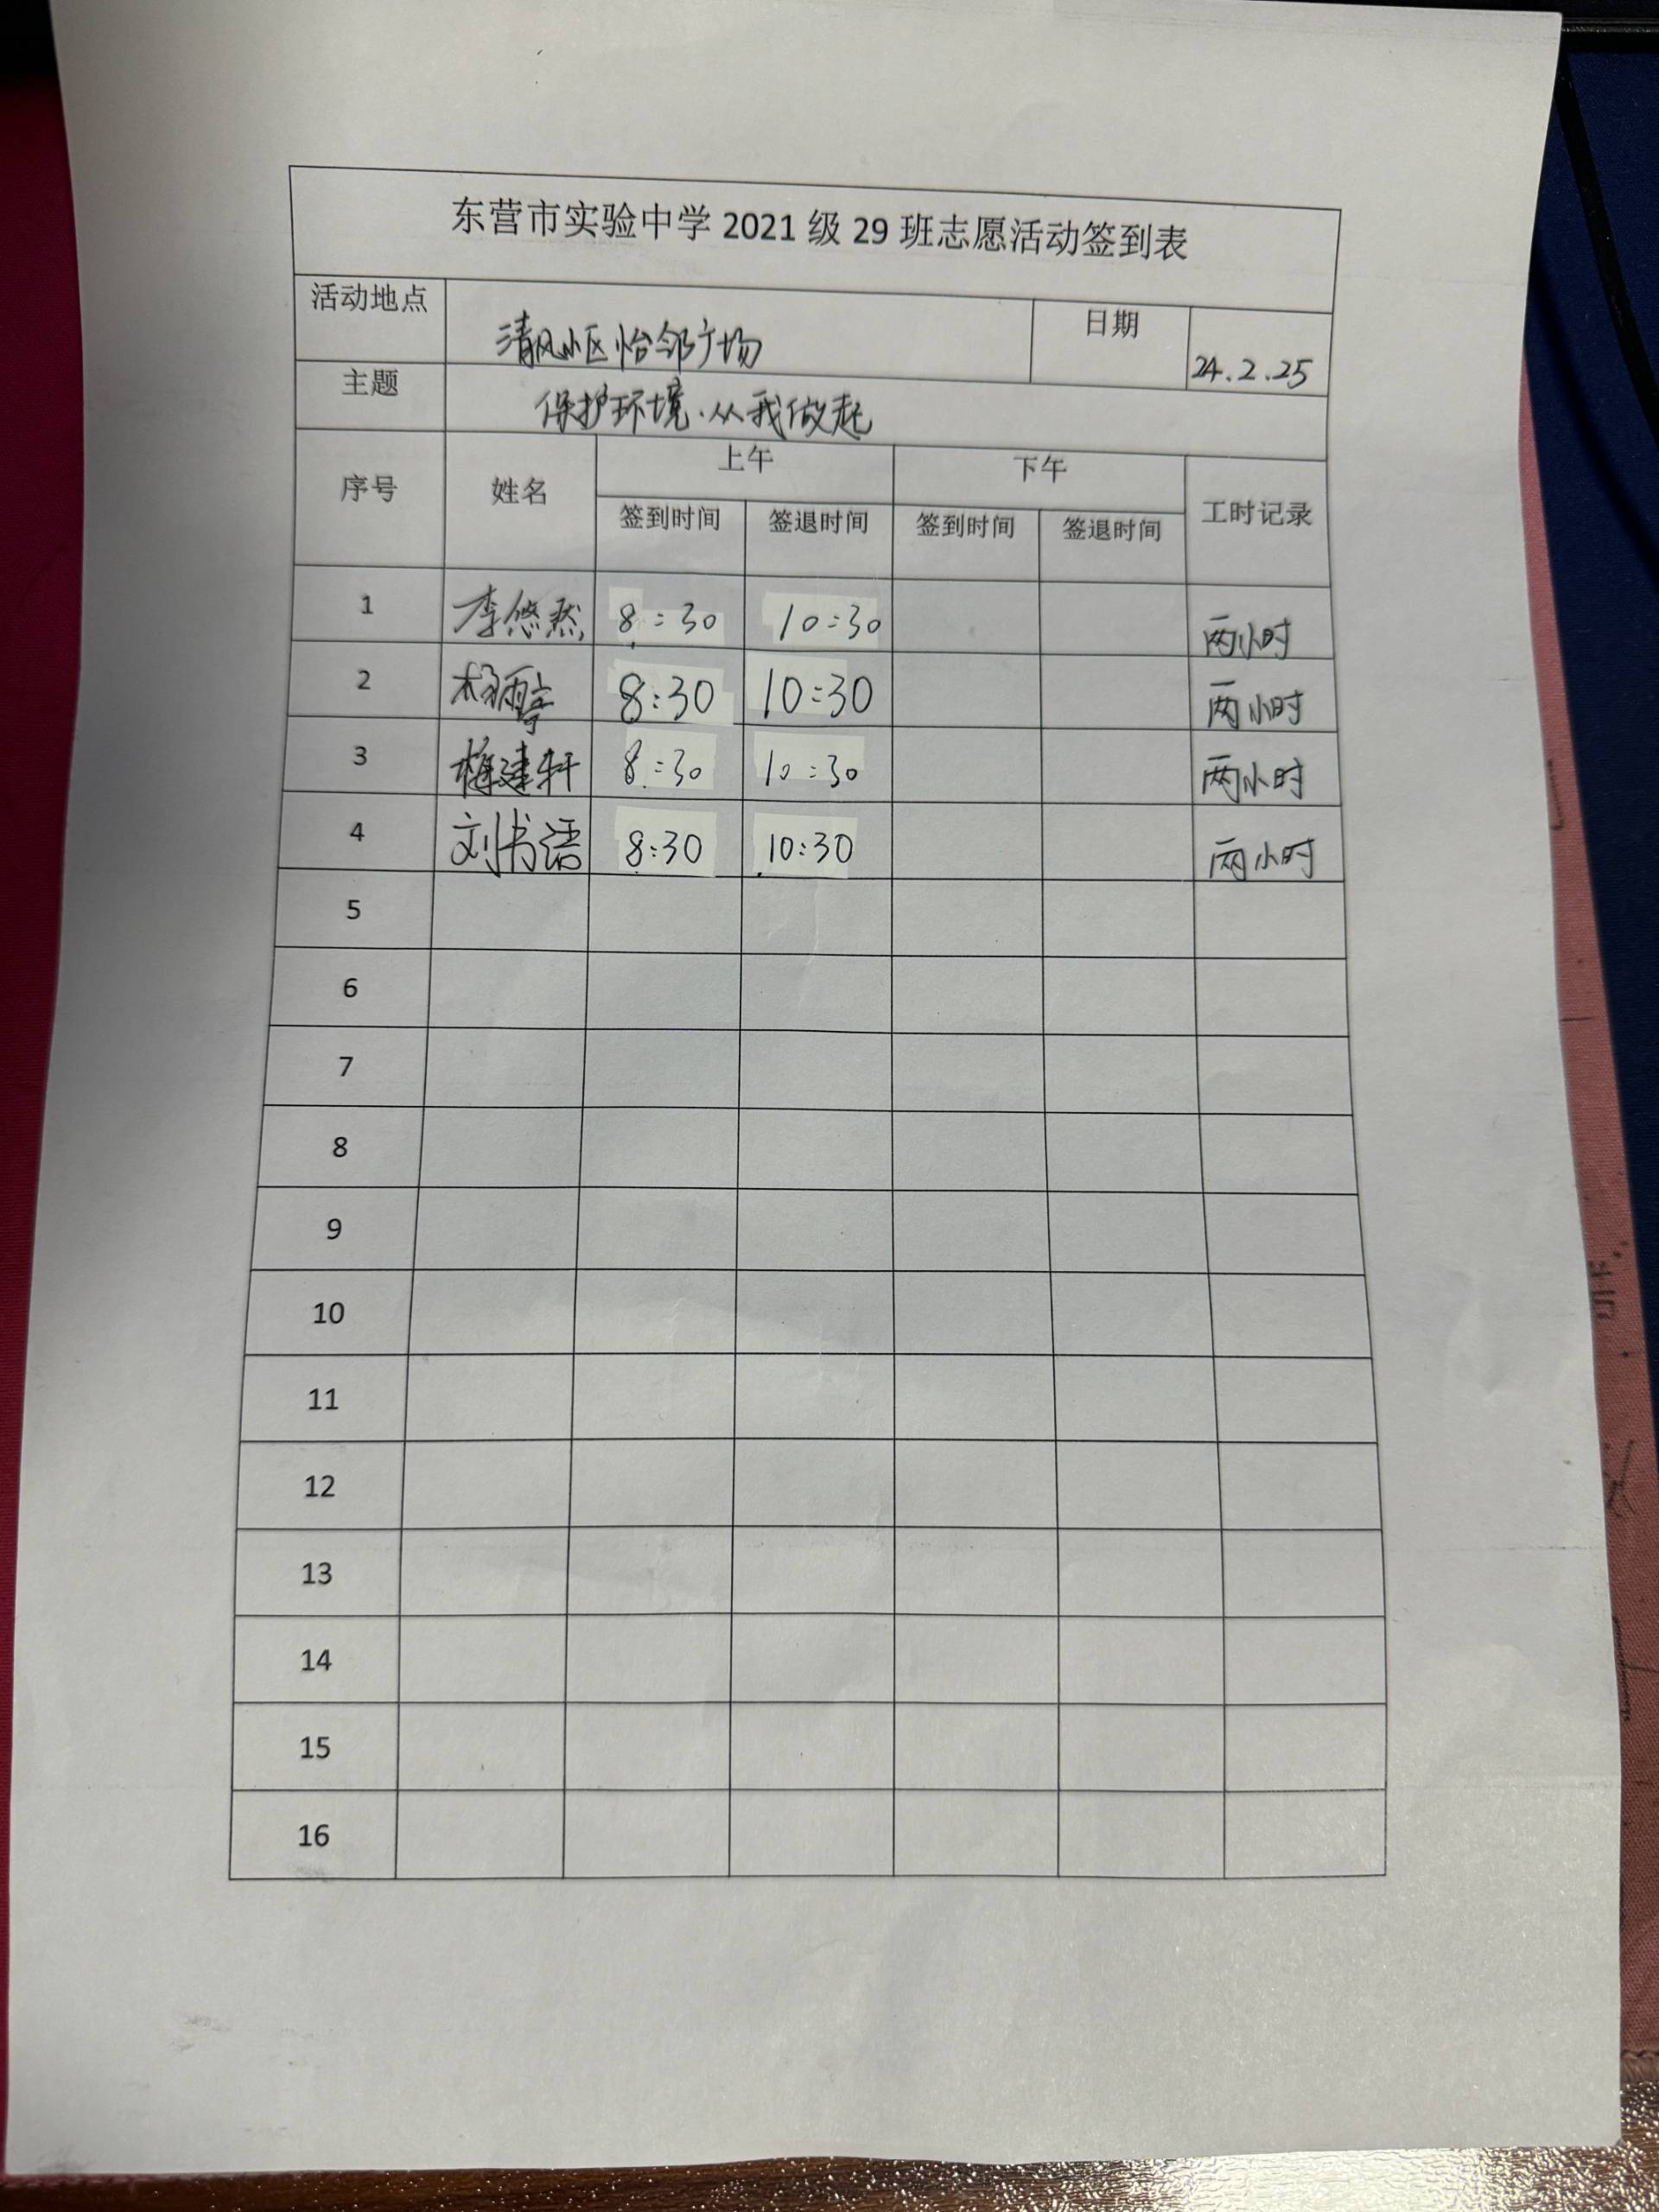 东营市实验中学 2021 级 29 班志愿活动签到表
活动地点 清风小区怡邻广场 日期 24.2.25
主题 保护环境·从我做起
序号 姓名 上午 下午 工时记录
签到时间 签退时间 签到时间 签退时间
1 李悠然 8:30 10:30 两小时
2 杨雨亭 8:30 10:30 两小时
3 梅建轩 8:30 10:30 两小时
4 刘书语 8:30 10:30 两小时
5
6
7
8
9
10
11
12
13
14
15
16